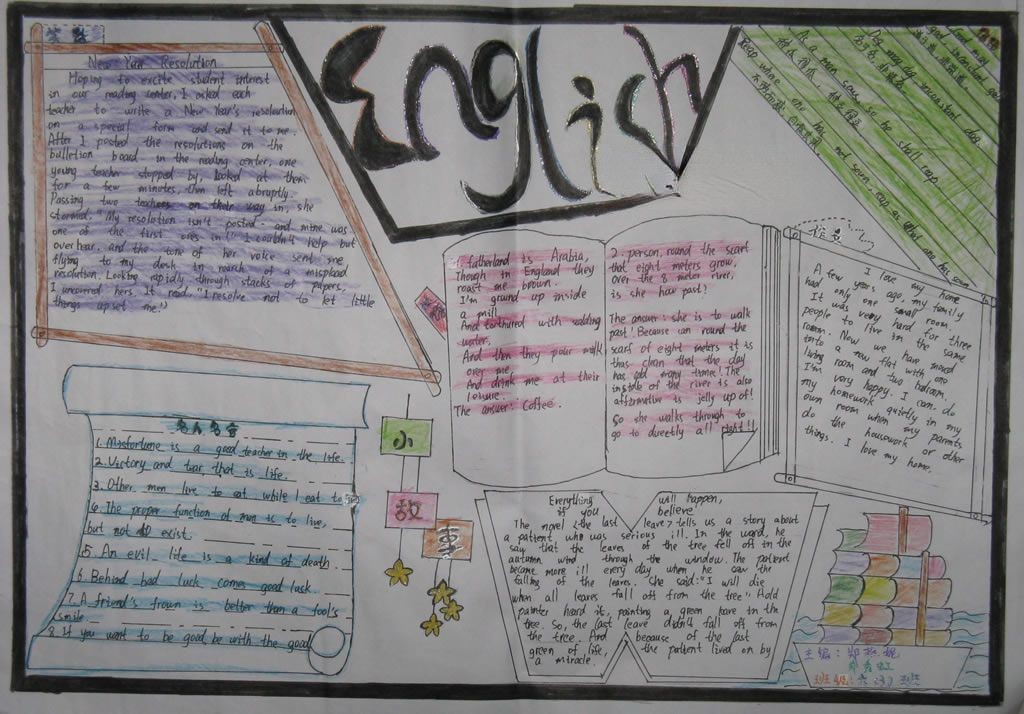 English
笑
New Year Resolution
Hoping to excite student interest
in our reading center, I asked each
teacher to write a New Year's resolution
on a special form and send it to me.
After I posted the resolutions on the
bulletion board in the reading center, one
young teacher stopped by, looked at them
for a few minutes, then left abruptly.
Passing two teachers on their way in, she
stormed. "My resolution isn't posted. and mine was
one of the first ones in!" I couldn't help but
overhear, and the tone of her voice sent me
flying to my desk in search of a misplaced
resolution. Looking rapidly through stacks of papers,
I uncovered hers. It read. "I resolve not to let little
things upset me."
名人名言
1. Misfortune is a good teacher in the life.
2. Victory and tear that is life.
3. Other men live to eat while I eat to
6. The proper function of man is to live,
but not exist.
5. An evil life is a kind of death
6. Behind bad luck comes good luck
7. A friend's frown is better than a fool's
smile.
8. If you want to be good, be with the good
小
故
事
fatherland is Arabia,
Though in England they
roast me brown.
I'm ground up inside
a mill
And torthured with
water,
And then they pour milk
over me
And drink me at their
leisure.
The answer: Coffee.
2. person, round the scarf
that eight meters grow,
over the 8 meter river,
is she how past?
The answer: she is to walk
past! Because can round the
scarf of eight meters it is
thus clean that the day
has old many time! The
inside of the river is also
affirmative is jelly up of!
So she walks through to
go to directly all right!!
As a man sows, so he shall reap
Reap where one has not sown
I love my home
A few years ago, my family
had only one small room.
It was very hard for three
people to live in the same
room. Now we have moved
into a new flat with one
living room and two bedroom.
I'm very happy. I can do
my homework quietly in my
own room when my parents
do the housework or other
things. I love my home.
Everything will happen,
if you believe
The novel <the last leave> tells us a story about
a patient who was serious ill. In the ward, he
say that the leaves of the tree fell off in the
autumn wind through the window. The patient
became more ill every day when he saw the
falling of the leaves. She said: "I will die
when all leaves fall off from the tree". Add
painter heard it, pointing a green leave in the
tree. So, the last leave didn't fall off from
the tree. And because of the last
green of life, the patient lived on by
a miracle.
主编:郑
班级:六 班